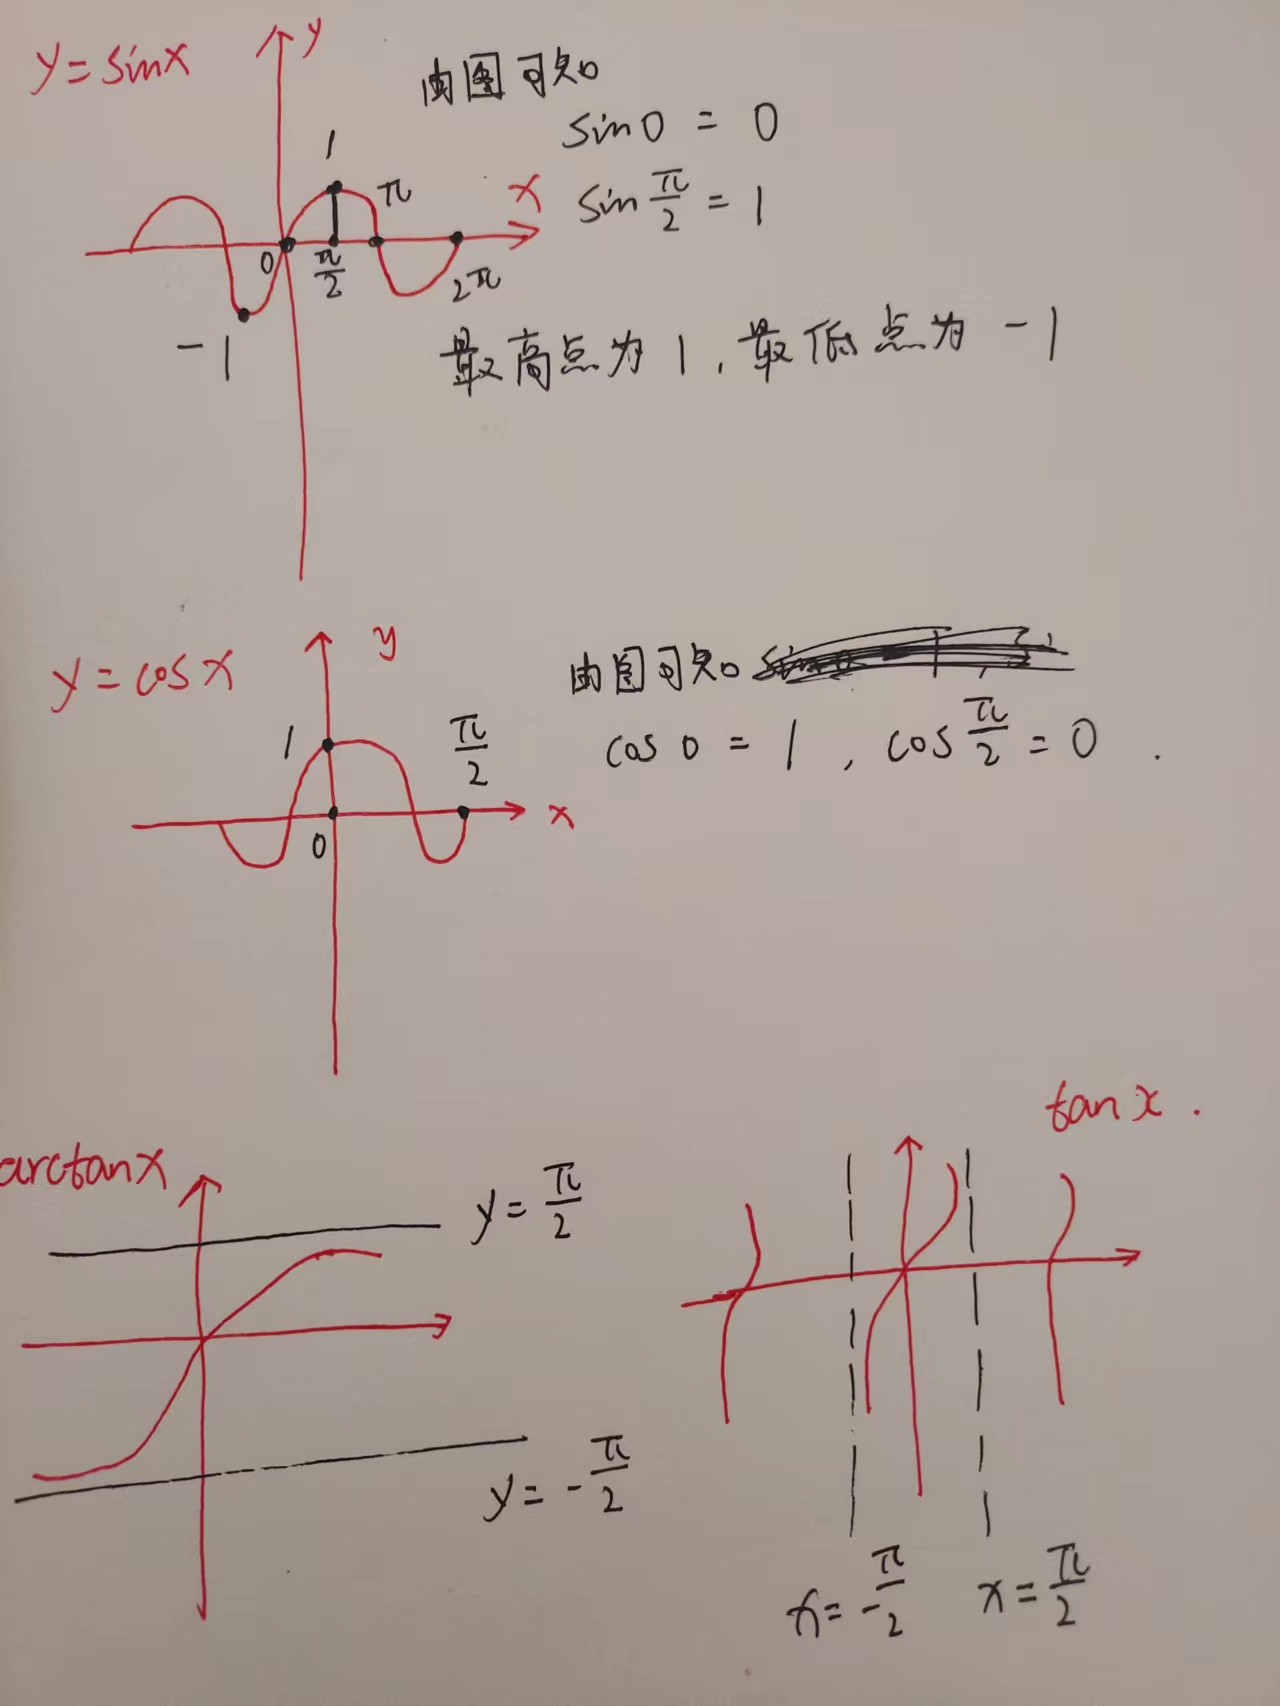 y=sinx
y
由图可知
sin0 = 0
1
π
x
sin π/2 = 1
0
π/2
2π
-1
最高点为1,最低点为-1
y
y=cosx
由图可知
1
π/2
cos0=1, cos π/2 = 0.
x
0
tanx.
arctanx
y=π/2
y=-π/2
x=-π/2
x=π/2